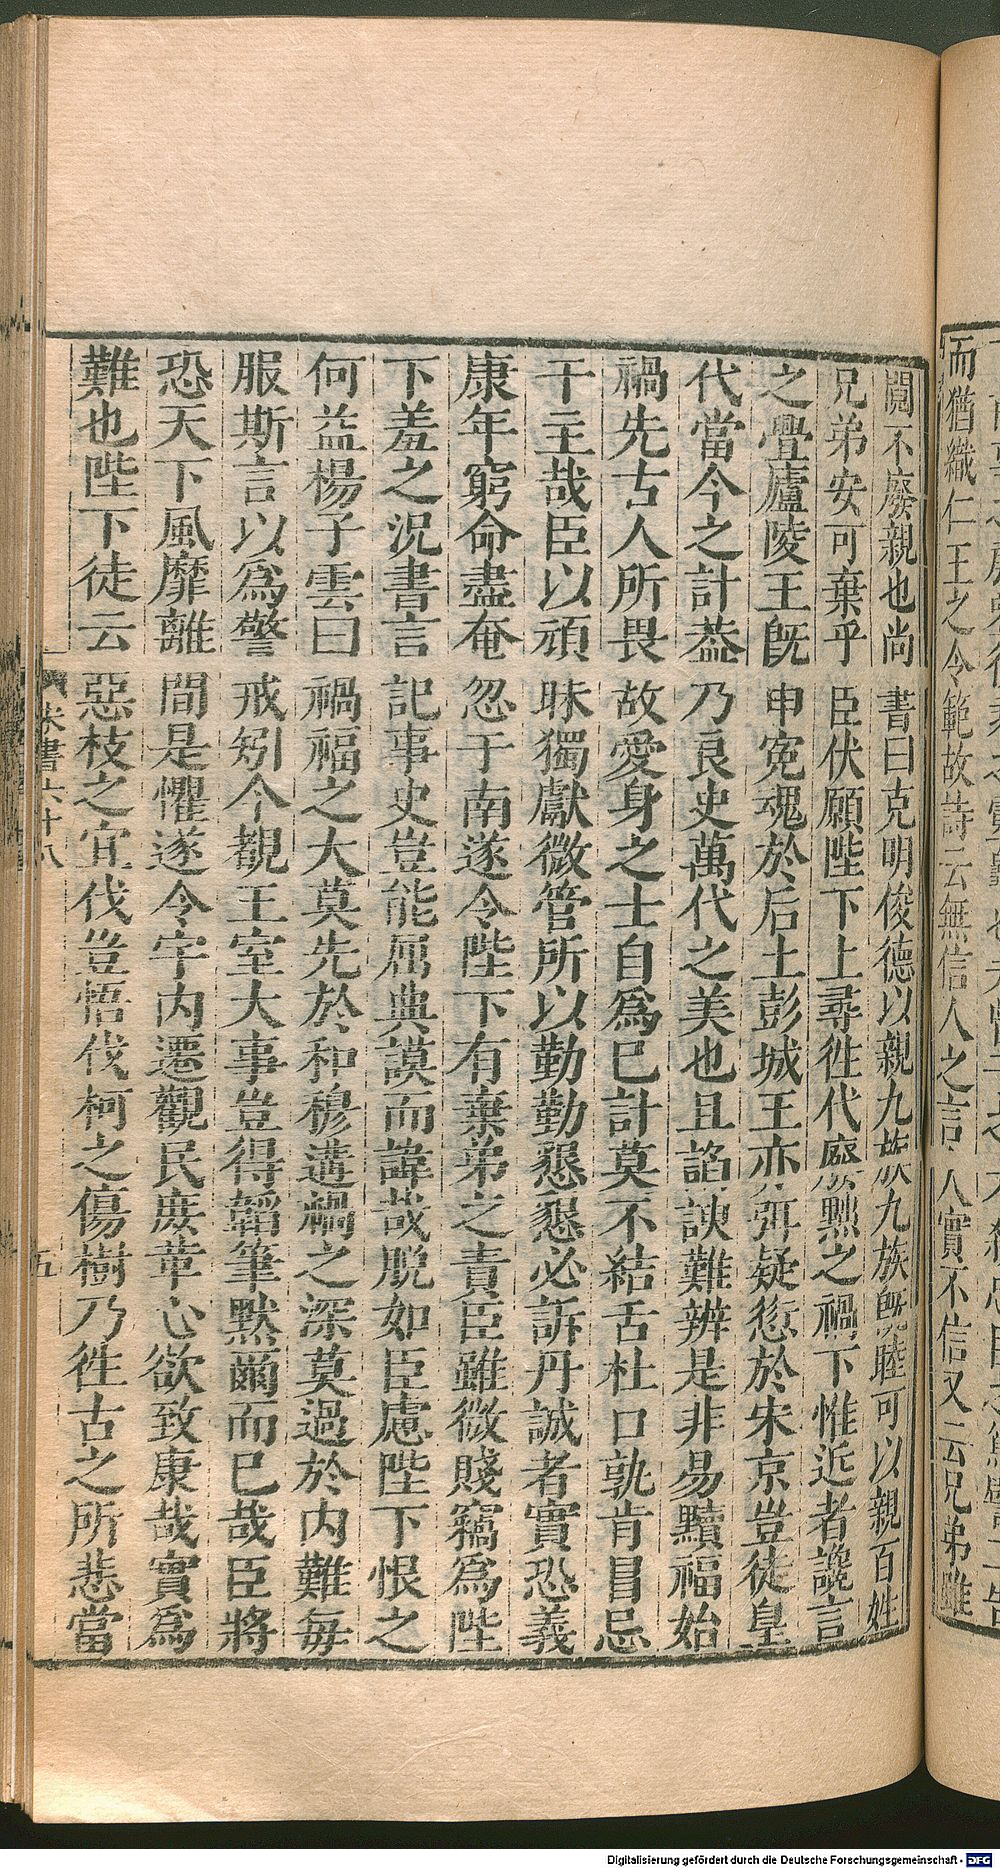 而猶織仁王之令範故詩云無信人之言人實不信又云兄弟雖
閱不廢親也尚書曰克明俊德以親九族九族旣睦可以親百姓
兄弟安可棄乎臣伏願陛下上尋徃代廢黜之禍下惟近者讒言
之舋廬陵王旣申寃魂於后土彭城王亦弭疑愆於宋京豈徒皇
代當今之計葢乃良史萬代之美也且諂諛難辨是非易黷福始
禍先古人所畏故愛身之士自爲已計莫不結舌杜口孰肯冒忌
干主哉臣以頑昧獨獻微管所以勤勤懇懇必訴丹誠者實恐義
康年窮命盡奄忽于南遂令陛下有棄弟之責臣雖微賤竊爲陛
下羞之況書言記事史豈能屈典謨而諱哉脫如臣慮陛下恨之
何益楊子雲曰禍福之大莫先於和穆遘禍之深莫過於内難每
服斯言以爲警戒矧今覩王室大事豈得韜筆默爾而已哉臣將
恐天下風靡離間是懼遂令宇内遷觀民庶革心欲致康哉實爲
難也陛下徒云惡枝之宜伐豈悟伐柯之傷樹乃徃古之所悲當
宋書六十八
五
Digitalisierung gefördert durch die Deutsche Forschungsgemeinschaft - DFG